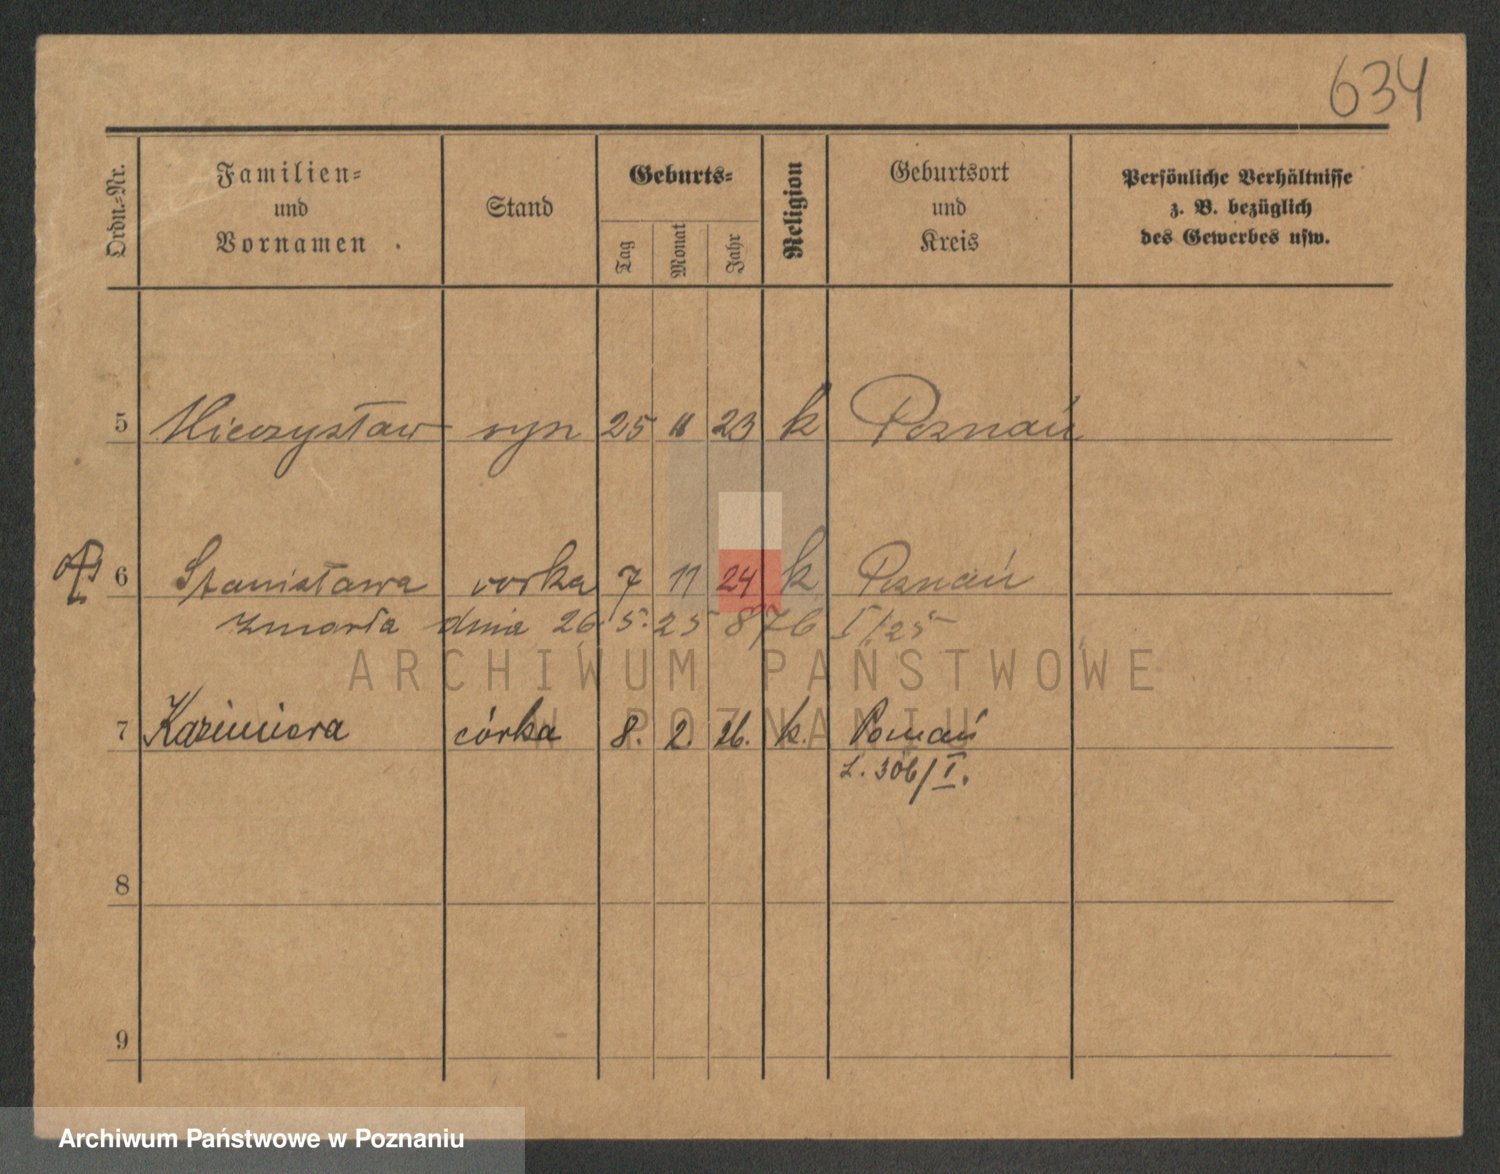 634
Ordn.-Nr.
Familien-
und
Vornamen
Stand
Geburts-
Tag
Monat
Jahr
Religion
Geburtsort
und
Kreis
Persönliche Verhältnisse
z. B. bezüglich
des Gewerbes usw.
5 Mieczysław syn 25 11 23 k Poznań
6 Stanisława corka 7 11 24 k Poznań
zmarła dnia 26. 5. 25 876 I/25
ARCHIWUM PAŃSTWOWE
W POZNANIU
7 Kazimiera córka 8. 2. 26. k. Poznań
L. 306/I.
8
9
Archiwum Państwowe w Poznaniu